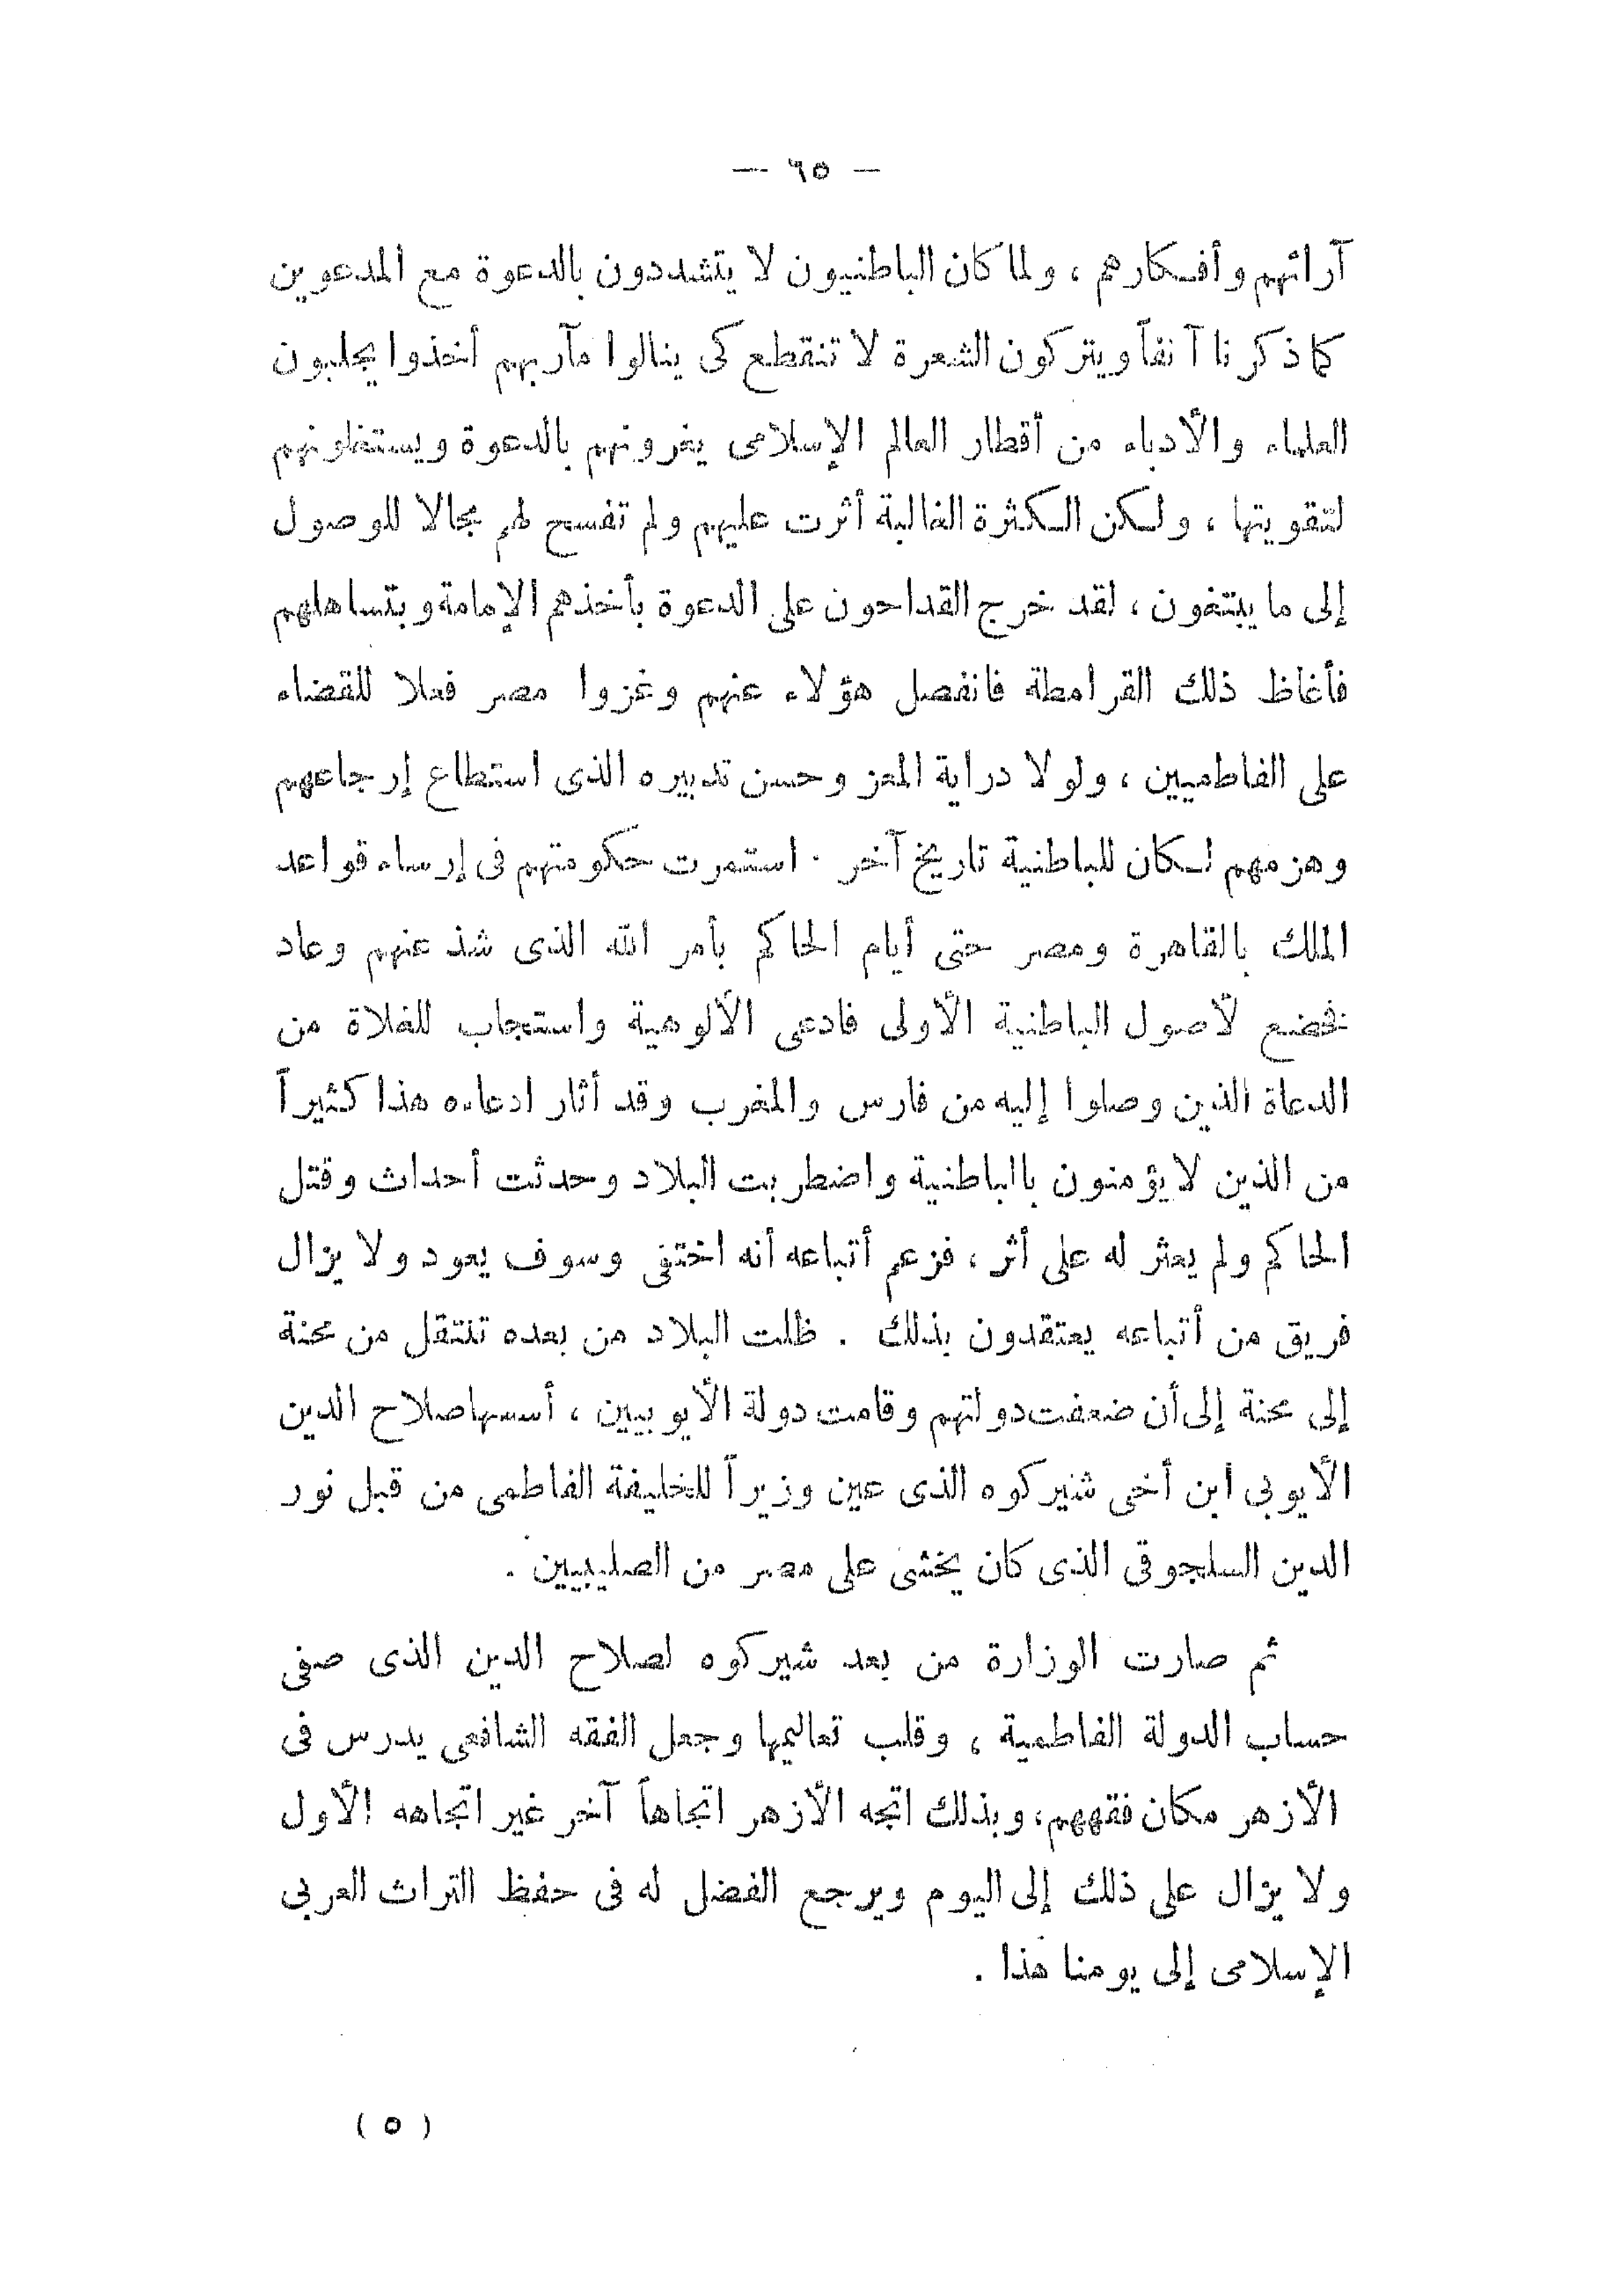 — ٦٥ —
آرائهم وأفكارهم ، ولما كان الباطنيون لا يتشددون بالدعوة مع المدعوين
كما ذكرنا آنفاً ويتركون الشعرة لا تنقطع كى ينالوا مآربهم أخذوا يجلبون
العلماء والأدباء من أقطار العالم الإسلامى يغرونهم بالدعوة ويستغلونهم
لتقويتها ، ولكن الكثرة الغالبة أثرت عليهم ولم تفسح لهم مجالا للوصول
إلى ما يبتغون ، لقد خرج القداحون على الدعوة بأخذهم الإمامة وبتساهلهم
فأغاظ ذلك القرامطة فانفصل هؤلاء عنهم وغزوا مصر فعلا للقضاء
على الفاطميين ، ولولا دراية المعز وحسن تدبيره الذى استطاع إرجاعهم
وهزمهم لكان للباطنية تاريخ آخر . استمرت حكومتهم فى إرساء قواعد
الملك بالقاهرة ومصر حتى أيام الحاكم بأمر الله الذى شذ عنهم وعاد
فخضع لأصول الباطنية الأولى فادعى الألوهية واستجاب للغلاة من
الدعاة الذين وصلوا إليه من فارس والمغرب وقد أثار ادعاءه هذا كثيراً
من الذين لا يؤمنون باالباطنية واضطربت البلاد وحدثت أحداث وقتل
الحاكم ولم يعثر له على أثر ، فزعم أتباعه أنه اختفى وسوف يعود ولا يزال
فريق من أتباعه يعتقدون بذلك . ظلت البلاد من بعده تنتقل من محنة
إلى محنة إلى أن ضعفت دولتهم وقامت دولة الأيوبيين ، أسسها صلاح الدين
الأيوبى ابن أخى شيركوه الذى عين وزيراً للخليفة الفاطمى من قبل نور
الدين السلجوقى الذى كان يخشى على مصر من الصليبيين .
ثم صارت الوزارة من بعد شيركوه لصلاح الدين الذى صفى
حساب الدولة الفاطمية ، وقلب تعاليمها وجعل الفقه الشافعى يدرس فى
الأزهر مكان فقههم، وبذلك اتجه الأزهر اتجاهاً آخر غير اتجاهه الأول
ولا يزال على ذلك إلى اليوم ويرجع الفضل له فى حفظ التراث العربى
الإسلامى إلى يومنا هذا .
( ٥ )